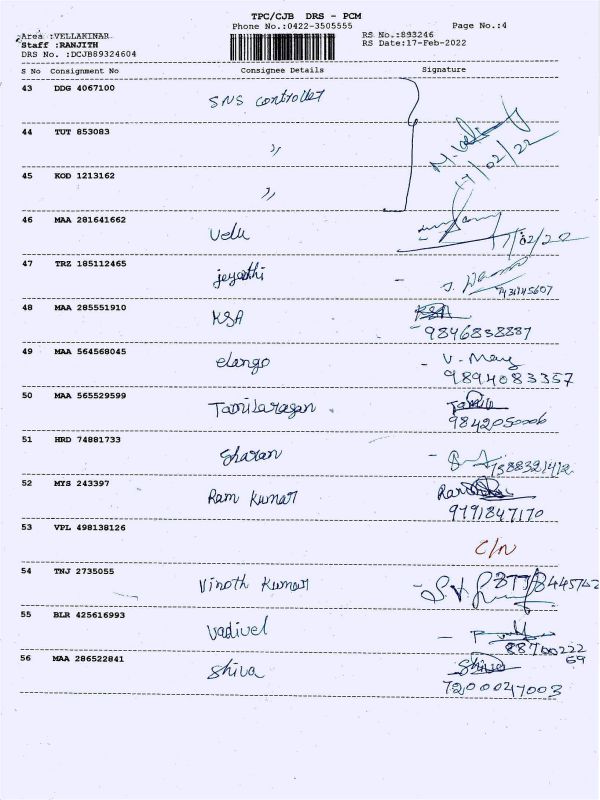 TPC/CJB DRS - PCM
Phone No.:0422-3505555 Page No.:4
Area :VELLAKINAR RS No.:893246
Staff :RANJITH RS Date:17-Feb-2022
DRS No. :DCJB89324604
S No Consignment No Consignee Details Signature
43 DDG 4067100 SNS controller
44 TUT 853083 ,,
17/02/22
45 KOD 1213162 ,,
46 MAA 281641662 Velu
47 TRZ 185112465 jeyathi
48 MAA 285551910 KSA KSA
9846838887
49 MAA 564568045 elango - V. Many
9894083357
50 MAA 565529599 Tamilarasan Tamil
9842050006
51 HRD 74881733 Sharan -
52 MYS 243397 Ram Kumar
9791847170
53 VPL 498138126
C/N
54 TNJ 2735055 Vinoth Kumar
55 BLR 425616993 Vadivel -
56 MAA 286522841 Shiva Shiva
7200047003